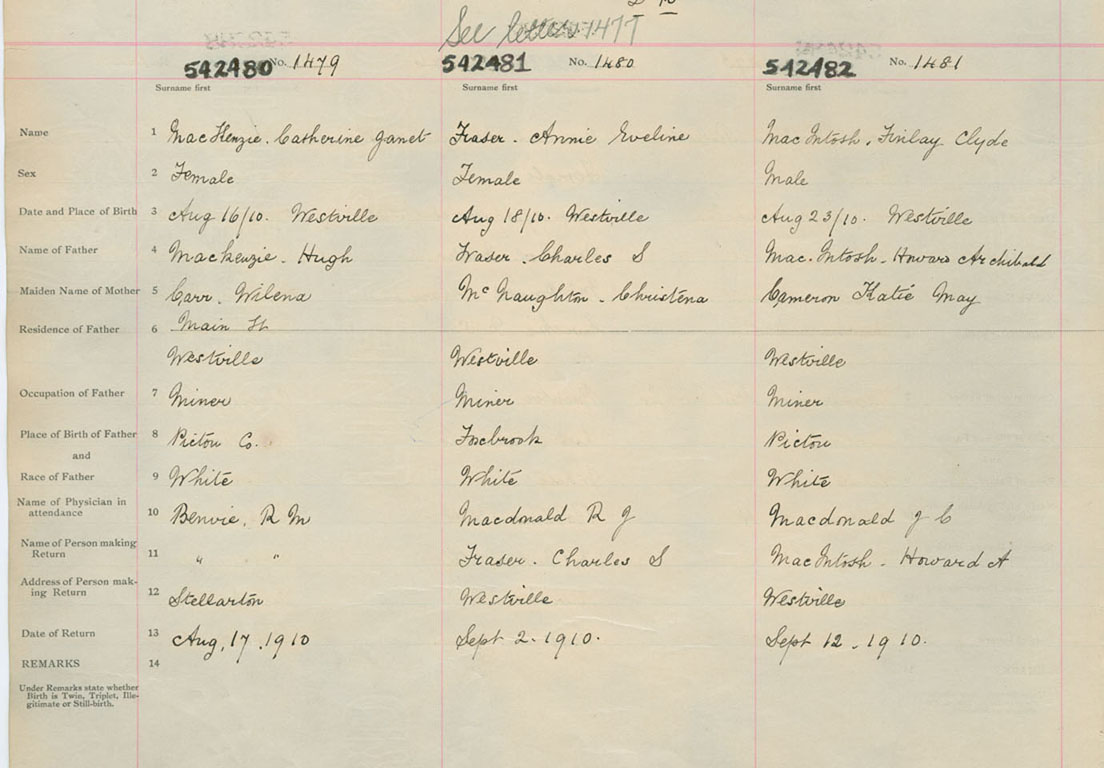 See letter 1477
542480 No. 1479 542481 No. 1480 542482 No. 1481
Surname first Surname first Surname first
Name 1 MacKenzie. Catherine Janet Fraser. Annie Eveline MacIntosh. Finlay Clyde
Sex 2 Female Female Male
Date and Place of Birth 3 Aug 16/10. Westville Aug 18/10. Westville Aug 23/10. Westville
Name of Father 4 Mackenzie. Hugh Fraser. Charles S Mac.Intosh. Howard Archibald
Maiden Name of Mother 5 Carr. Wilena McNaughton. Christena Cameron Katie May
Residence of Father 6 Main St
Westville Westville Westville
Occupation of Father 7 Miner Miner Miner
Place of Birth of Father 8 Pictou Co. Foxbrook Pictou
and
Race of Father 9 White White White
Name of Physician in
attendance 10 Benvie. R M Macdonald R J Macdonald J C
Name of Person making
Return 11 " " Fraser. Charles S MacIntosh. Howard A
Address of Person mak-
ing Return 12 Stellarton Westville Westville
Date of Return 13 Aug, 17, 1910 Sept 2. 1910. Sept 12. 1910.
REMARKS 14
Under Remarks state whether
Birth is Twin, Triplet, Ille-
gitimate or Still-birth.